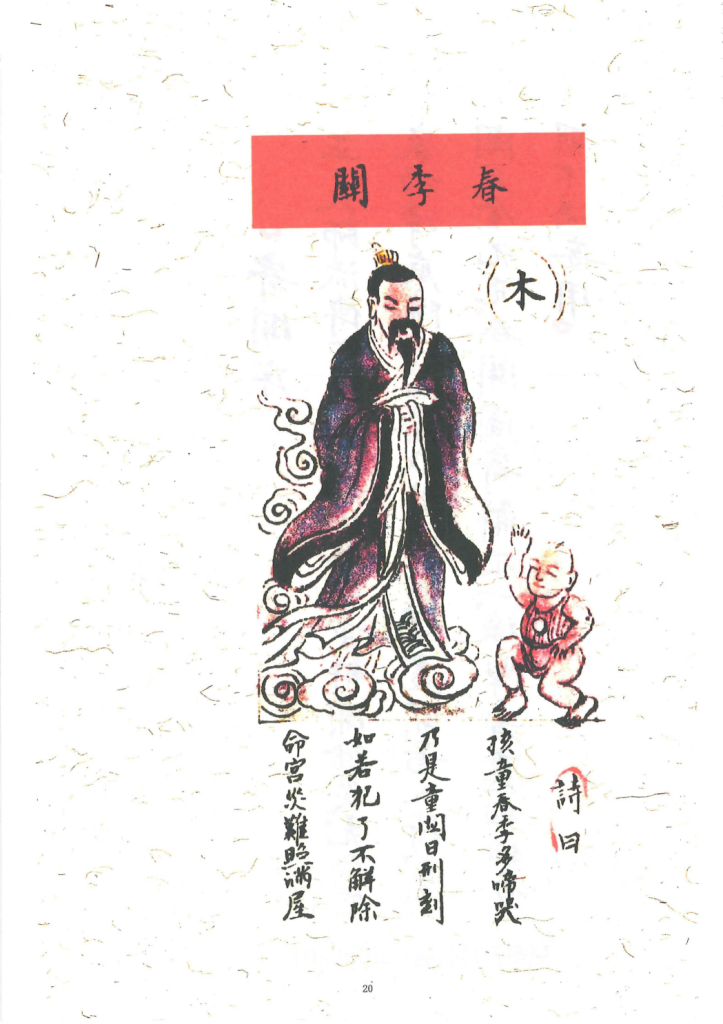 春季關
木
詩曰
孩童春季多啼哭
乃是童関日刑剋
如若犯了不解除
命宮災難照满屋
20